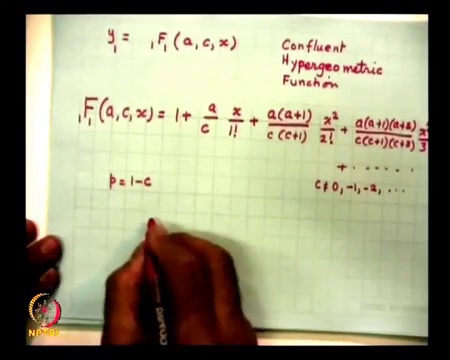 y₁ = ₁F₁(a, c, x)
Confluent
Hypergeometric
Function
₁F₁(a, c, x) = 1 + a/c x/1! + a(a+1)/c(c+1) x²/2! + a(a+1)(a+2)/c(c+1)(c+2) x³/3
+ ......
p = 1 - c
c ≠ 0, -1, -2, ...
NPTEL